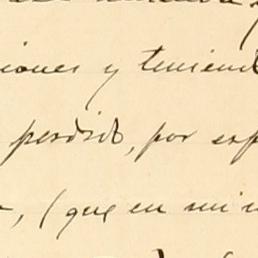 iones y teniend
perdido, por esp
, (que en mi